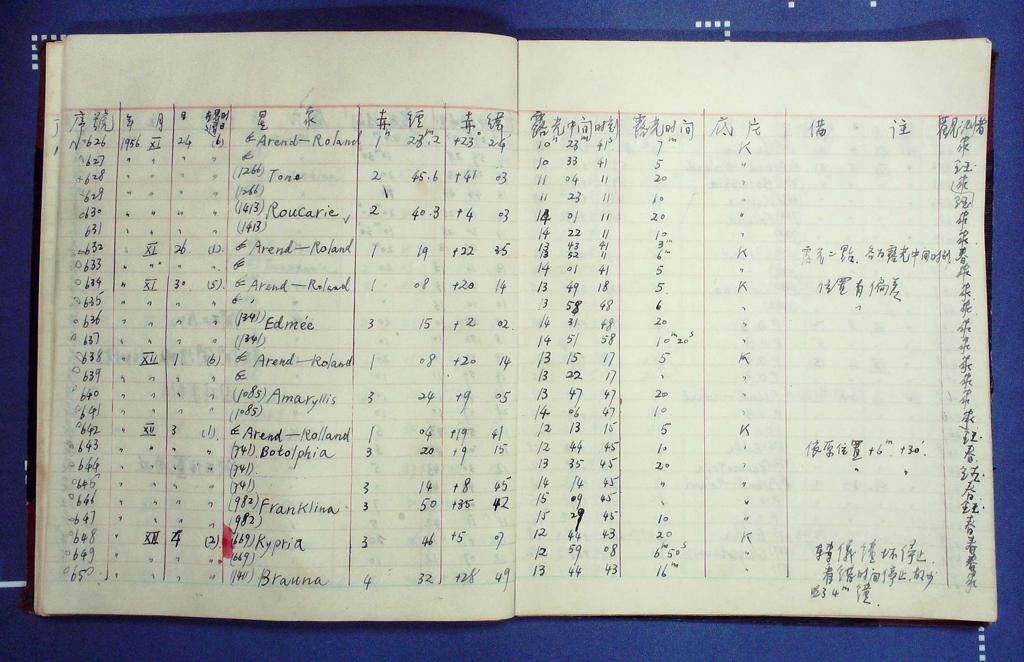 序號 年 月 日 星 象 赤 經 赤 緯 露光中间时刻 露光时间 底片 備 註 觀測者
626 1956 XI 24 (6) Arend—Roland 1h 23m.2 +23° 24' 10h 23m 41s 7m K
627 " " " " 10 33 41 5 "
628 " " " " (1266) Tone 2 45.6 +41 03 11 04 11 20 "
629 " " " " (1266) 11 23 11 10 "
630 " " " " (1413) Roucarie 2 40.3 +4 03 14 01 11 20 "
631 " " " " (1413) 14 22 11 10 "
632 " XI 26 (1) Arend—Roland 1 19 +22 35 13 43 41 3m K 露光二點, 各为露光中间时刻
13 52 11 6m
633 " " " " 14 01 41 5 "
634 " XI 30 (5) Arend—Roland 1 08 +20 14 13 49 18 5 K 位置有偏差
635 " " " " 13 58 48 6 " "
636 " " " " (1341) Edmée 3 15 +2 02 14 31 48 20 "
637 " " " " (1341) 14 51 58 10m 20s "
638 " XII 1 (6) Arend—Roland 1 08 +20 14 13 15 17 5 K
639 " " " " 13 22 17 " "
640 " " " " (1085) Amaryllis 3 24 +9 05 13 47 47 20 "
641 " " " " (1085) 14 06 47 10 "
642 " XII 3 (1) Arend—Rolland 1 04 +19 41 12 13 15 5 K
643 " " " " (741) Botolphia 3 20 +9 15 12 44 45 10 " 依原位置 +6m +30'
644 " " " " (741) 13 35 45 20 " " "
645 " " " " (741) 3 14 +8 45 14 14 45 " "
646 " " " " (982) Franklina 3 50 +35 42 15 09 45 " "
647 " " " " (982) 15 29 45 10 "
648 " XII 4 (2) (669) Kypria 3 46 +5 07 12 44 43 20 K
649 " " " " (669) 12 59 08 6m50s " 轉儀鐘坏停止
650 " " " " (1411) Brauna 4 32 +28 49 13 44 43 16m " 有錯时间停止, 故少
4m 鐘.